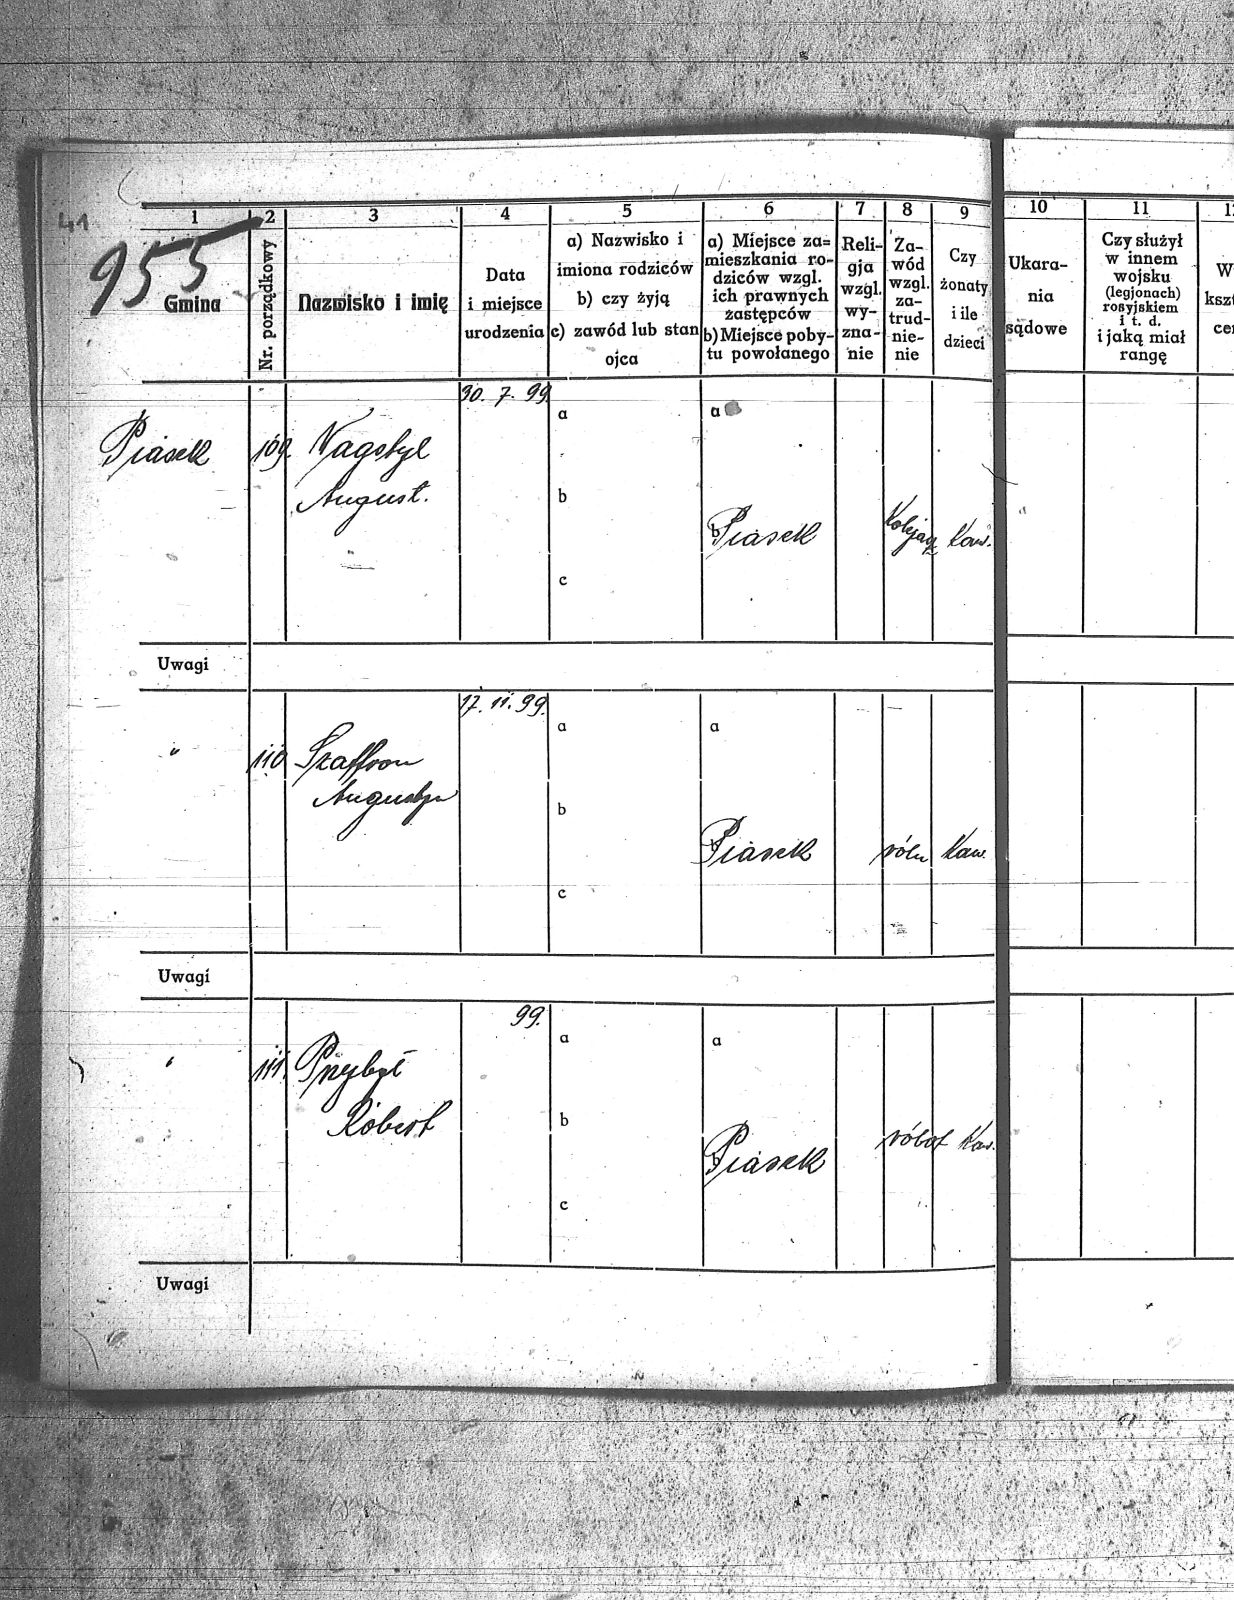 41
955
1 2 3 4 5 6 7 8 9 10 11
Gmina
Nr. porządkowy
Nazwisko i imię
Data
i miejsce
urodzenia
a) Nazwisko i
imiona rodziców
b) czy żyją
c) zawód lub stan
ojca
a) Miejsce za=
mieszkania ro-
dziców wzgl.
ich prawnych
zastępców
b) Miejsce poby-
tu powołanego
Reli-
gja
wzgl.
wy-
zna-
nie
Za-
wód
wzgl.
za-
trud-
nie-
nie
Czy
żonaty
i ile
dzieci
Ukara-
nia
sądowe
Czy służył
w innem
wojsku
(legjonach)
rosyjskiem
i t. d.
i jaką miał
rangę
30. 7. 99
a a
Piasek 109. August.
b b Piasek Kaw.
c
Uwagi
17. 11. 99.
a a
" 110 Szaffron
Augustyn
b Piasek róln Kaw.
c
Uwagi
99.
a a
" 111. Przybył
Robert
b b Piasek róbot Kaw.
c
Uwagi